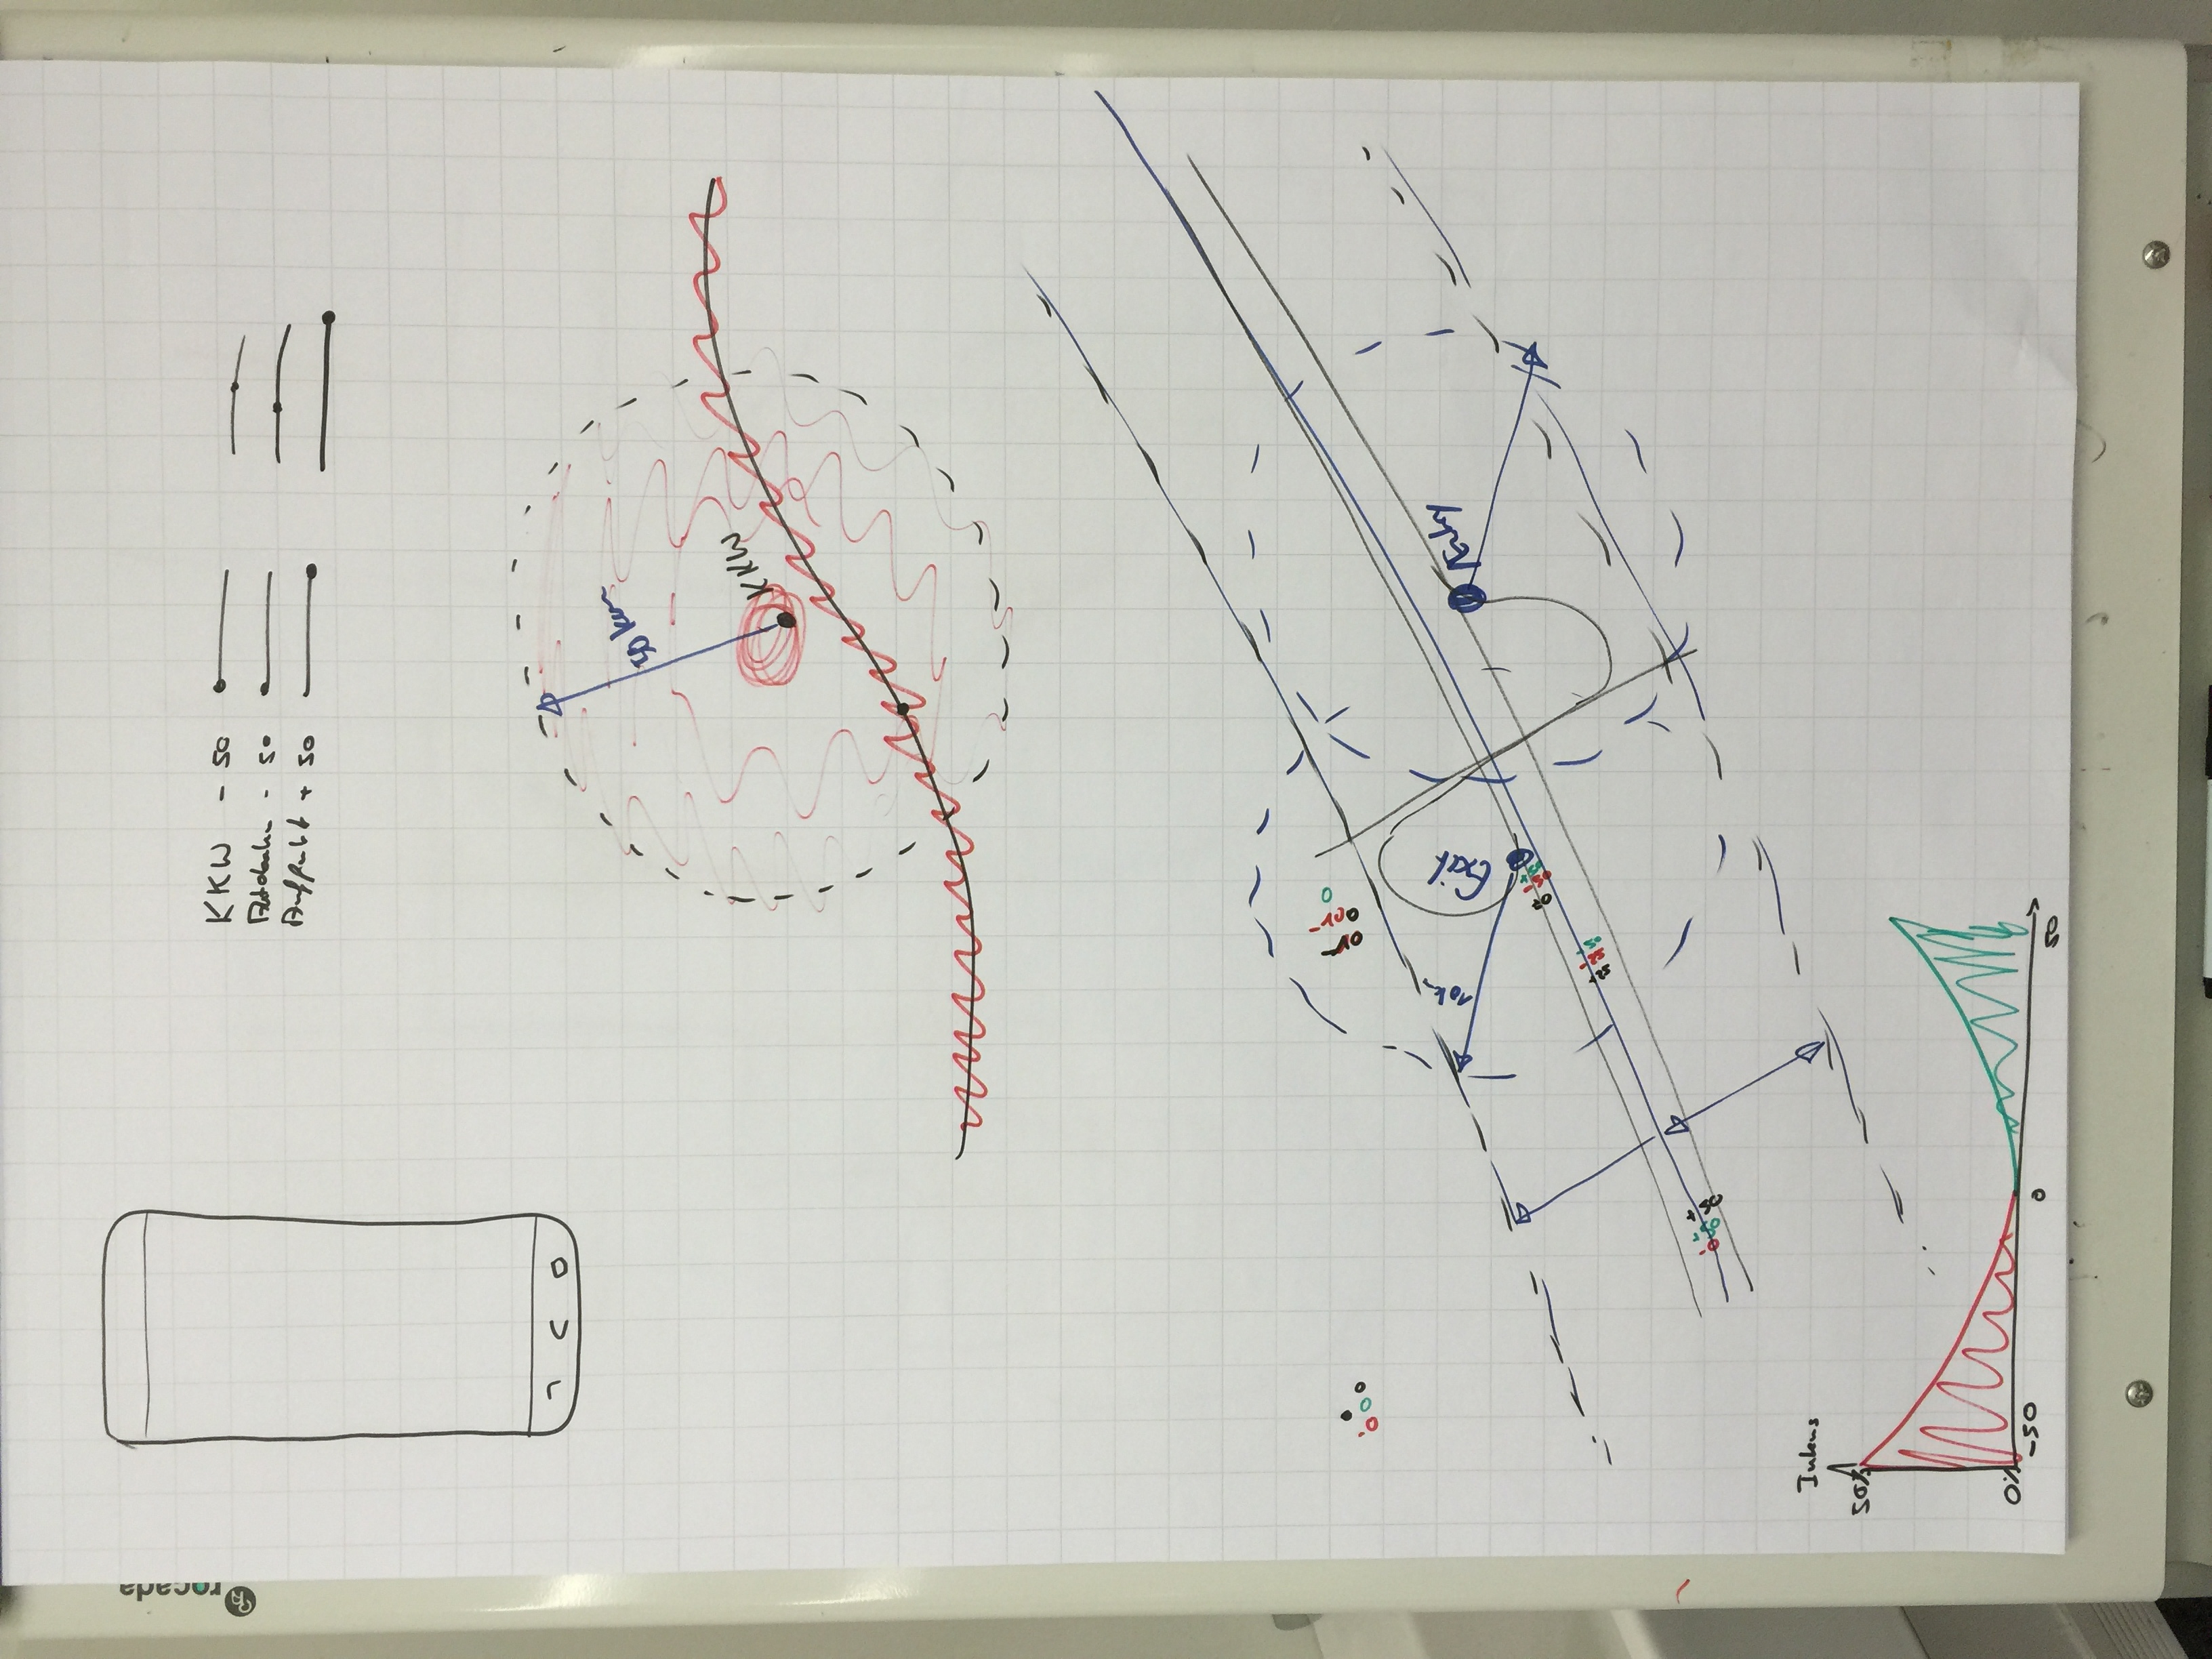 rocada
KKW - 50
Autobahn - 50
Auffahrt + 50
50 km
KKW
10 km
Exit
Entry
Intens
50%
0%
-50
0
50